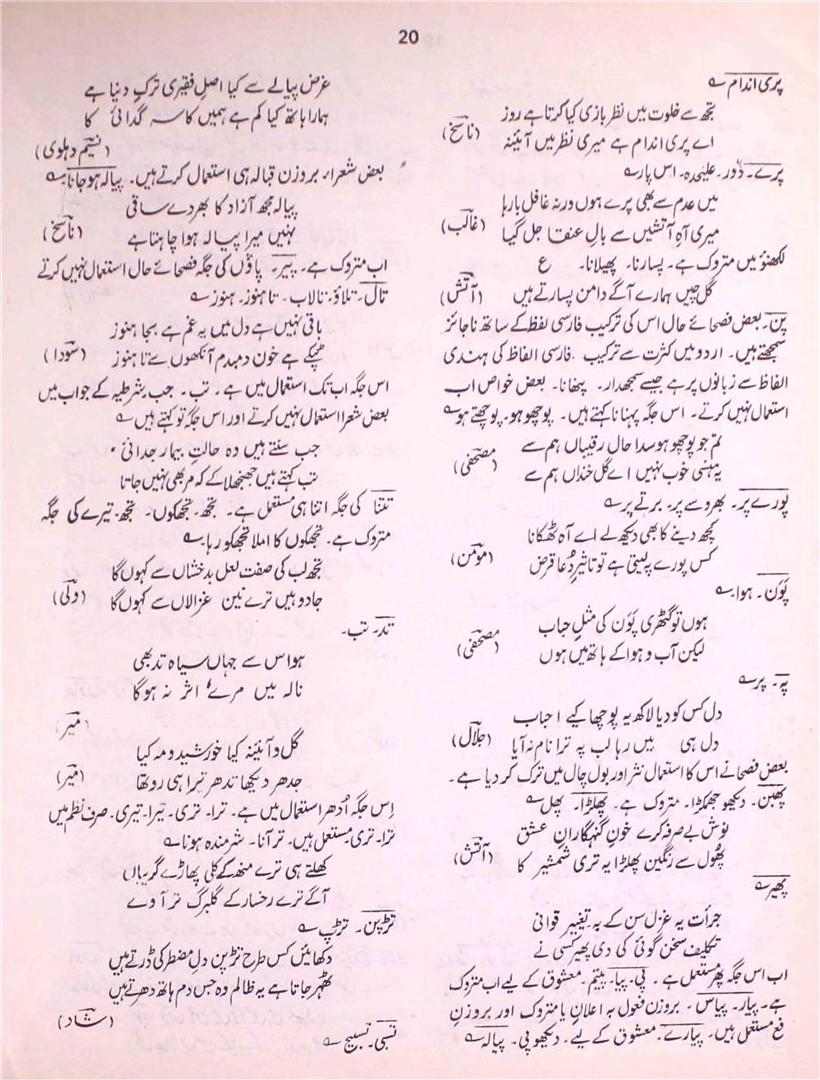 20
پری اندام ؎
تجھ سے خلوت میں نظر بازی کیا کرتا ہے روز
اے پری اندام ہے میری نظر میں آئینہ (ناسخ)
پرے۔ دُور۔ علیٰحدہ۔ اس پار ؎
میں عدم سے بھی پرے ہوں ورنہ غافل بارہا
میری آہِ آتشیں سے بالِ عنقا جل گیا (غالب)
لکھنؤ میں متروک ہے۔ پسارنا۔ پھیلانا۔ ع
گل چیں ہمارے آگے دامن پسارتے ہیں (آتش)
پن۔ بعض فصحائے حال اس کی ترکیب فارسی لفظ کے ساتھ ناجائز
سمجھتے ہیں۔ اردو میں کثرت سے ترکیب فارسی الفاظ کی ہندی
الفاظ سے زبانوں پر ہے جیسے سمجھدار۔ پنھانا۔ بعض خواص اب
استعمال نہیں کرتے۔ اس جگہ پہنانا کہتے ہیں۔ پوچھو ہو۔ پوچھتے ہو ؎
تم جو پوچھو ہو سدا حال رقیباں ہم سے
یہ ہنسی خوب نہیں اے گل خنداں ہم سے (مصحفی)
پورے پر۔ بھروسے پر۔ برتے پر ؎
کچھ دینے کا بھی دیکھ لے اے آہ ٹھکانا
کس پورے پر لیتی ہے تو تاثیرِ دُعا قرض (مومن)
پَوَن۔ ہوا ؎
ہوں تو گٹھری پَوَن کی مثلِ حباب
لیکن آب و ہوا کے ہاتھ میں ہوں (مصحفی)
پہ۔ پر ؎
دل کس کو دیا لاکھ یہ پوچھا کیے احباب
دل ہی میں رہا لب پہ ترا نام نہ آیا (جلال)
بعض فصحا نے اس کا استعمال نثر اور بول چال میں ترک کر دیا ہے۔
پھبن۔ دیکھو جھمکڑا۔ متروک ہے۔ پھلڑا۔ پھل ؎
نوش بے صرفہ کرے خونِ گنہگارانِ عشق
پھُول سے رنگین پھلڑا یہ تری شمشیر کا (آتش)
پھیر ؎
جرأت یہ غزل سن کے بہ تغییر قوافی
تکلیف سخن گوئی کی دی پھیر کسی نے
اب اس جگہ پھر مستعمل ہے۔ پی۔ پیا۔ پیتم۔ معشوق کے لیے اب متروک
ہے۔ پیار۔ پیاس۔ بروزن فعول بہ اعلانِ یا متروک اور بروزنِ
فع مستعمل ہیں۔ پیارے۔ معشوق کے لیے۔ دیکھو پی۔ پیالہ ؎
غرض پیالے سے کیا اصلِ فقیری ترکِ دنیا ہے
ہمارا ہاتھ کیا کم ہے ہمیں کاسہ گدائی کا
(نسیم دہلوی)
بعض شعراء بروزن قبالہ ہی استعمال کرتے ہیں۔ پیالہ ہو جانا ؎
پیالہ مجھ آزاد کا بھر دے ساقی
نہیں میرا پیالہ ہوا چاہتا ہے (ناسخ)
اب متروک ہے۔ پیر۔ پاؤں کی جگہ فصحائے حال استعمال نہیں کرتے
تال۔ تلاؤ۔ تالاب۔ تا ہنوز۔ ہنوز ؎
باقی نہیں ہے دل میں یہ غم ہے بجا ہنوز
ٹپکے ہے خون دمبدم آنکھوں سے تا ہنوز (سودا)
اس جگہ اب تک استعمال میں ہے۔ تب۔ جب شرطیہ کے جواب میں
بعض شعرا استعمال نہیں کرتے اور اس جگہ تو کہتے ہیں ؎
جب سنتے ہیں وہ حالتِ بیمار جدائی
تب کہتے ہیں جھنجھلا کے کہ مر بھی نہیں جاتا
تتنا کی جگہ اتنا ہی مستعمل ہے۔ تجھ۔ تجھکوں۔ تجھ۔ تیرے کی جگہ
متروک ہے۔ تجھکوں کا املا تجھکو رہا ؎
تجھ لب کی صفت لعلِ بدخشاں سے کہوں گا
جادو ہیں ترے نین غزالاں سے کہوں گا (ولی)
تد۔ تب۔
ہو اس سے جہاں سیاہ تد بھی
نالہ میں مرے اثر نہ ہو گا
(میر)
گل و آئینہ کیا خورشید و مہ کیا
جدھر دیکھا تدھر تیرا ہی رو تھا (میر)
اِس جگہ اُدھر استعمال میں ہے۔ ترا۔ تری۔ تیرا۔ تیری۔ صرف نظم میں
ترا۔ تری مستعمل ہیں۔ تر آنا۔ شرمندہ ہونا ؎
کھلتے ہی ترے منھ کے کلی پھاڑے گریباں
آگے ترے رخسار کے گلبرگ تر آوے
تڑپن۔ تڑپ ؎
دکھائیں کس طرح تڑپن دلِ مضطر کی ڈرتے ہیں
ٹھہر جاتا ہے یہ ظالم وہ جس دم ہاتھ دھرتے ہیں
(شاد)
تسبی۔ تسبیح ؎